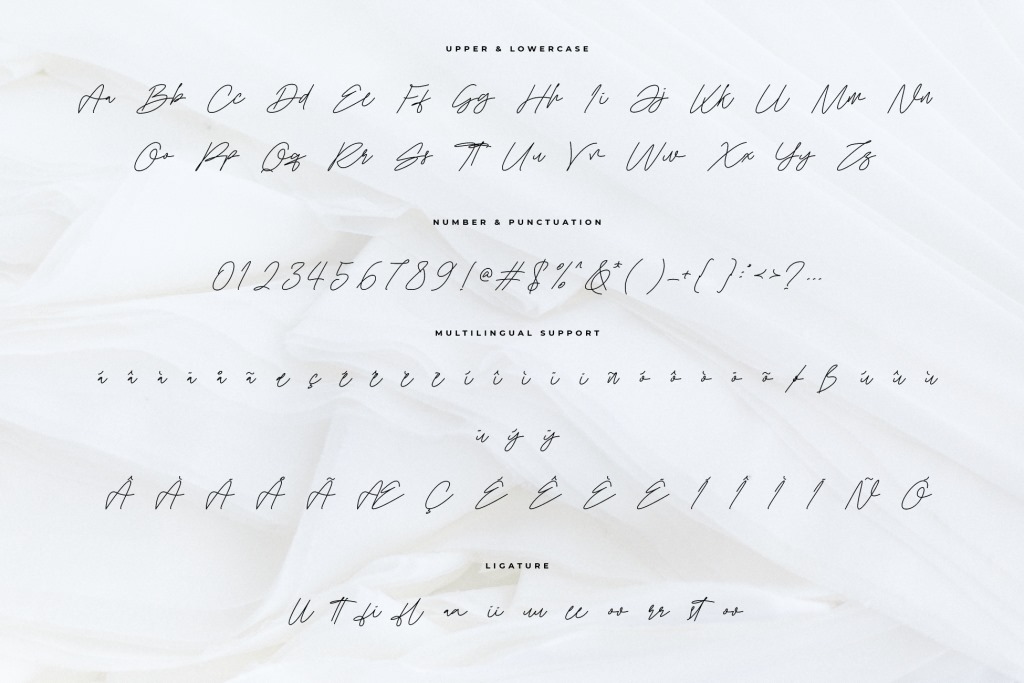 UPPER & LOWERCASE
Aa Bb Cc Dd Ee Ff Gg Hh Ii Jj Kk Ll Mm Nn
Oo Pp Qq Rr Ss Tt Uu Vv Ww Xx Yy Zz
NUMBER & PUNCTUATION
0123456789!@#$%^&*( )_+{ }:<>?...
MULTILINGUAL SUPPORT
á â à ä å ã æ ç é ê è ë í î ì ï i ñ ó ô ò ö õ ø ß ú û ù
ü ý ÿ
Â À Ä Å Ã Æ Ç É Ê È Ë Í Î Ì Ï Ñ Ó
LIGATURE
ll tt fi fl aa ii uu ee oo rr st